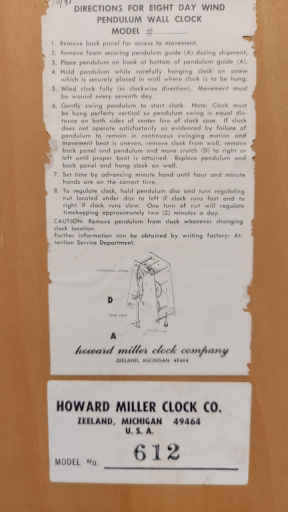 DIRECTIONS FOR EIGHT DAY WIND
PENDULUM WALL CLOCK
MODEL #
1. Remove back panel for access to movement.
2. Remove foam securing pendulum guide (A) during shipment.
3. Place pendulum on hook at bottom of pendulum guide (A).
4. Hold pendulum while carefully hanging clock on screw
which is securely placed in wall where clock is to be hung.
5. Wind clock fully (in clockwise direction). Movement must
be wound every seventh day.
6. Gently swing pendulum to start clock. Note: Clock must
be hung perfectly vertical so pendulum swing is equal dis-
tance on both sides of center line of clock case. If clock
does not operate satisfactorily as evidenced by failure of
pendulum to remain in continuous swinging motion and
movement beat is uneven, remove clock from wall, remove
back panel and pendulum and move crutch (D) to right or
left until proper beat is attained. Replace pendulum and
back panel and hang clock on wall.
7. Set time by advancing minute hand until hour and minute
hands are on the correct time.
8. To regulate clock, hold pendulum disc and turn regulating
nut located under disc to left if clock runs fast and to
right if clock runs slow. One turn of nut will regulate
timekeeping approximately two (2) minutes a day.
CAUTION: Remove pendulum from clock whenever changing
clock location.
Further information can be obtained by writing factory: At-
tention Service Department.
D
A
howard miller clock company
ZEELAND, MICHIGAN 49464
HOWARD MILLER CLOCK CO.
ZEELAND, MICHIGAN 49464
U. S. A.
MODEL No. 612